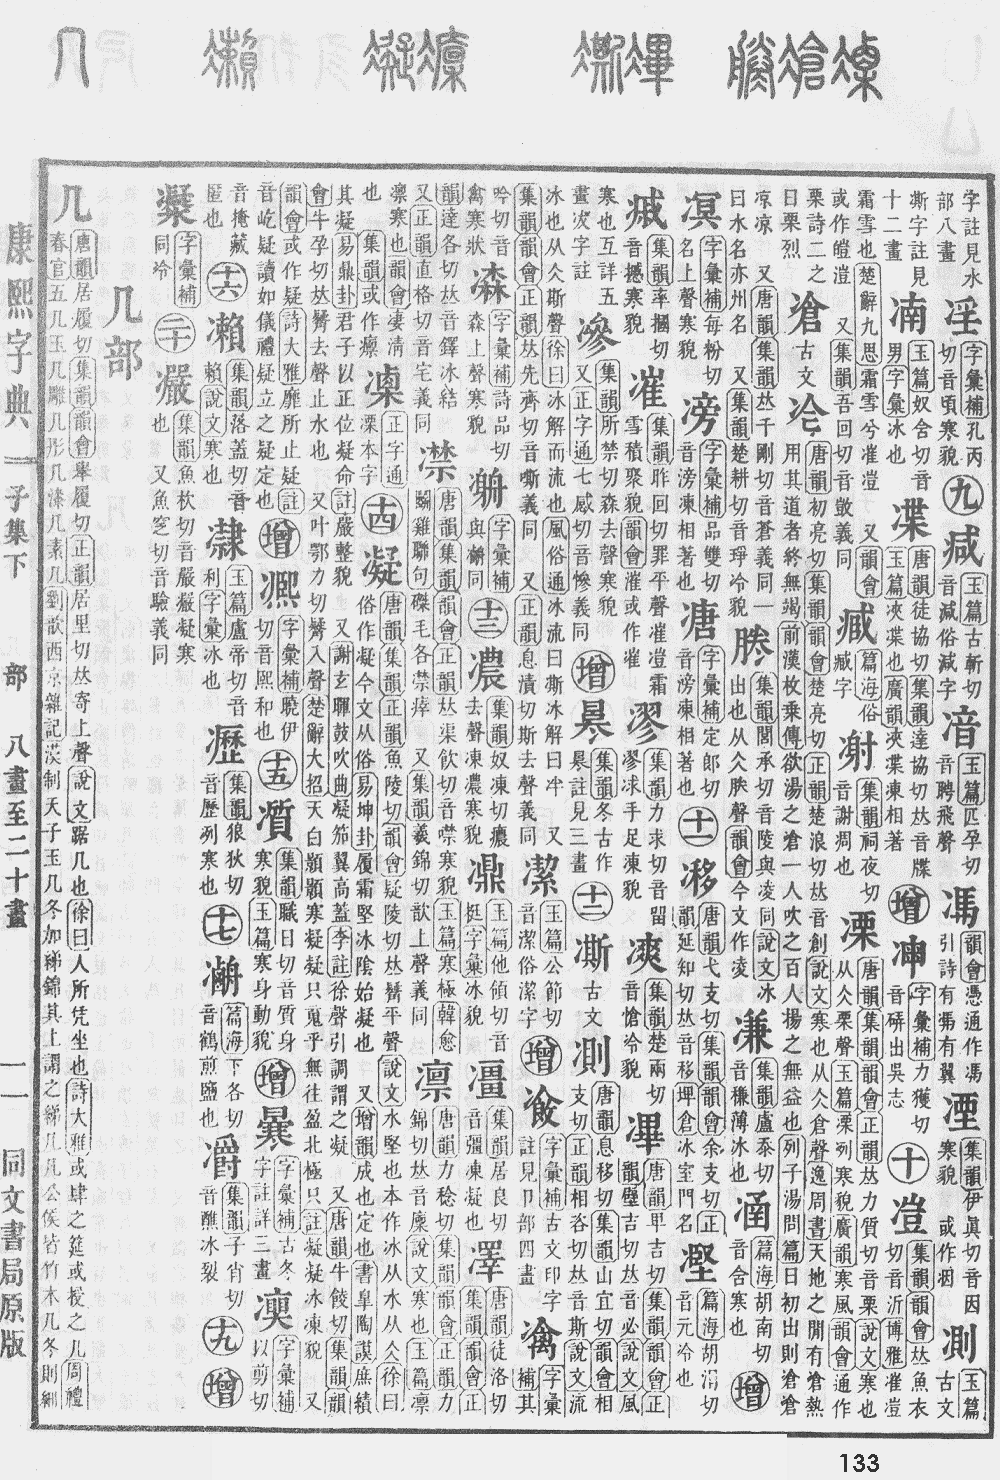 字註見水部八畫 字彙補孔丙切音頃寒貌 九 減 玉篇古斬切音減俗減字 玉篇匹孕切音聘飛聲 馮 韻會憑通作馮引詩有馮有翼 凐 集韻伊眞切音因寒貌 或作 測 玉篇古文
凘字註見十二畫 玉篇奴含切音男字彙冰也 唐韻徒協切集韻達協切𠀤音牒玉篇浹渫也廣韻浹渫凍相著 增 字彙補力獲切音砉出吳志 十 凒 集韻韻會𠀤魚衣切音沂博雅凗凒
霜雪也楚辭九思霜雪兮凗凒 又韻會或作皚溰 又集韻吾回切音敳義同 篇海俗臧字 集韻祠夜切音謝凋也 凓 唐韻集韻韻會正韻𠀤力質切音栗說文寒也从仌栗聲玉篇凓冽寒貌廣韻寒風韻會通作
栗詩二之日栗烈 凔 古文 唐韻初亮切集韻韻會楚亮切正韻楚浪切𠀤音創說文寒也从仌倉聲逸周書天地之閒有凔熱用其道者終無竭前漢枚乘傳欲湯之凔一人吹之百人揚之無益也列子湯問篇日初出則凔凔
凉凉 又唐韻集韻𠀤千剛切音蒼義同一曰水名亦州名 又集韻楚耕切音琤冷貌 集韻閭承切音陵與凌同說文冰出也从仌朕聲韻會今文作凌 凁 集韻盧忝切音稴薄冰也 篇海胡南切音含寒也 增
字彙補每粉切名上聲寒貌 字彙補品雙切音滂凍相著也 字彙補定郎切音滂凍相著也 十一 唐韻弋支切集韻韻會余支切正韻延知切𠀤音移埤倉冰室門名 篇海胡涓切音元冷也
集韻率摑切音摵寒貌 凗 集韻昨回切罪平聲凗凒霜雪積聚貌韻會漼或作凗 集韻力求切音留瀏浗手足凍貌 集韻楚兩切音愴冷貌 凓 唐韻卑吉切集韻韻會正韻璧吉切𠀤音必說文風
寒也互詳五畫沷字註 集韻所禁切森去聲寒貌 又正字通七感切音慘義同 增 集韻冬古作㬎註見三畫 十二 凘 古文 唐韻息移切集韻山宜切韻會相支切正韻相咨切𠀤音斯說文流
冰也从仌斯聲徐曰冰解而流也風俗通冰流曰凘冰解曰泮 又集韻韻會正韻𠀤先齊切音嘶義同 又正韻息漬切斯去聲義同 潔 玉篇公節切音潔俗潔字 增 字彙補古文印字註見卩部四畫 字彙補其
吟切音禽寒狀 字彙補詩品切森上聲寒貌 字彙補與㶍同 十三 集韻奴凍切癑去聲凍濃寒貌 玉篇他頂切音挺字彙冰貌 集韻居良切音疆凍凝也 澤 唐韻徒洛切集韻韻會正
韻達各切𠀤音鐸冰結 又正韻直格切音宅義同 凚 唐韻集韻韻會𠀤渠飮切音噤寒極韓愈鬬雞聯句磔毛各噤瘁 又集韻羲錦切歆上聲義同 凛 唐韻力稔切集韻韻會正韻力錦切𠀤音廩說文寒也玉篇凛
凛寒也韻會凄淸也 集韻或作癛 凜 正字通凓本字 十四 凝 唐韻集韻正韻魚陵切韻會疑陵切𠀤䰯平聲說文水堅也本作冰从水从仌徐曰俗作凝今文从俗易坤卦履霜堅冰陰始凝也 又增韻成也定也書皐陶謨庶績
其凝易鼎卦君子以正位凝命註嚴整貌 又謝玄暉鼓吹曲凝笳翼高蓋李註徐聲引調謂之凝 又唐韻牛餕切集韻韻會牛孕切𠀤䰯去聲止水也 又叶鄂力切䰯入聲楚辭大招天白顥顥寒凝凝只䰟乎無往盈北極只註凝凝冰凍貌 又
韻會或作疑詩大雅靡所止疑註音屹疑讀如儀禮疑立之疑定也 增 凞 字彙補曉伊切切音熙和也 十五 集韻職日切音質身寒貌玉篇寒身動貌 增 字彙補古冬字註詳三畫 字彙補以剪切
音掩藏匿也 十六 瀨 集韻落蓋切音賴說文寒也 玉篇盧帝切音利字彙冰也 集韻狼狄切音歷冽寒也 十七 篇海下各切音鶴煎鹽也 集韻子肖切音醮冰裂 十九 增
字彙補同冷 二十 集韻魚杴切音嚴嚴凝寒也 又魚窆切音驗義同
几部
几 唐韻居履切集韻韻會舉履切正韻居里切𠀤寄上聲說文踞几也徐曰人所凭坐也詩大雅或肆之筵或授之几周禮春官五几玉几雕几彤几漆几素几劉歆西京雜記漢制天子玉几冬加綈錦其上謂之綈几凡公侯皆竹木几冬則細
康熙字典 子集下 部 八畫至二十畫 一一 同文書局原版
133